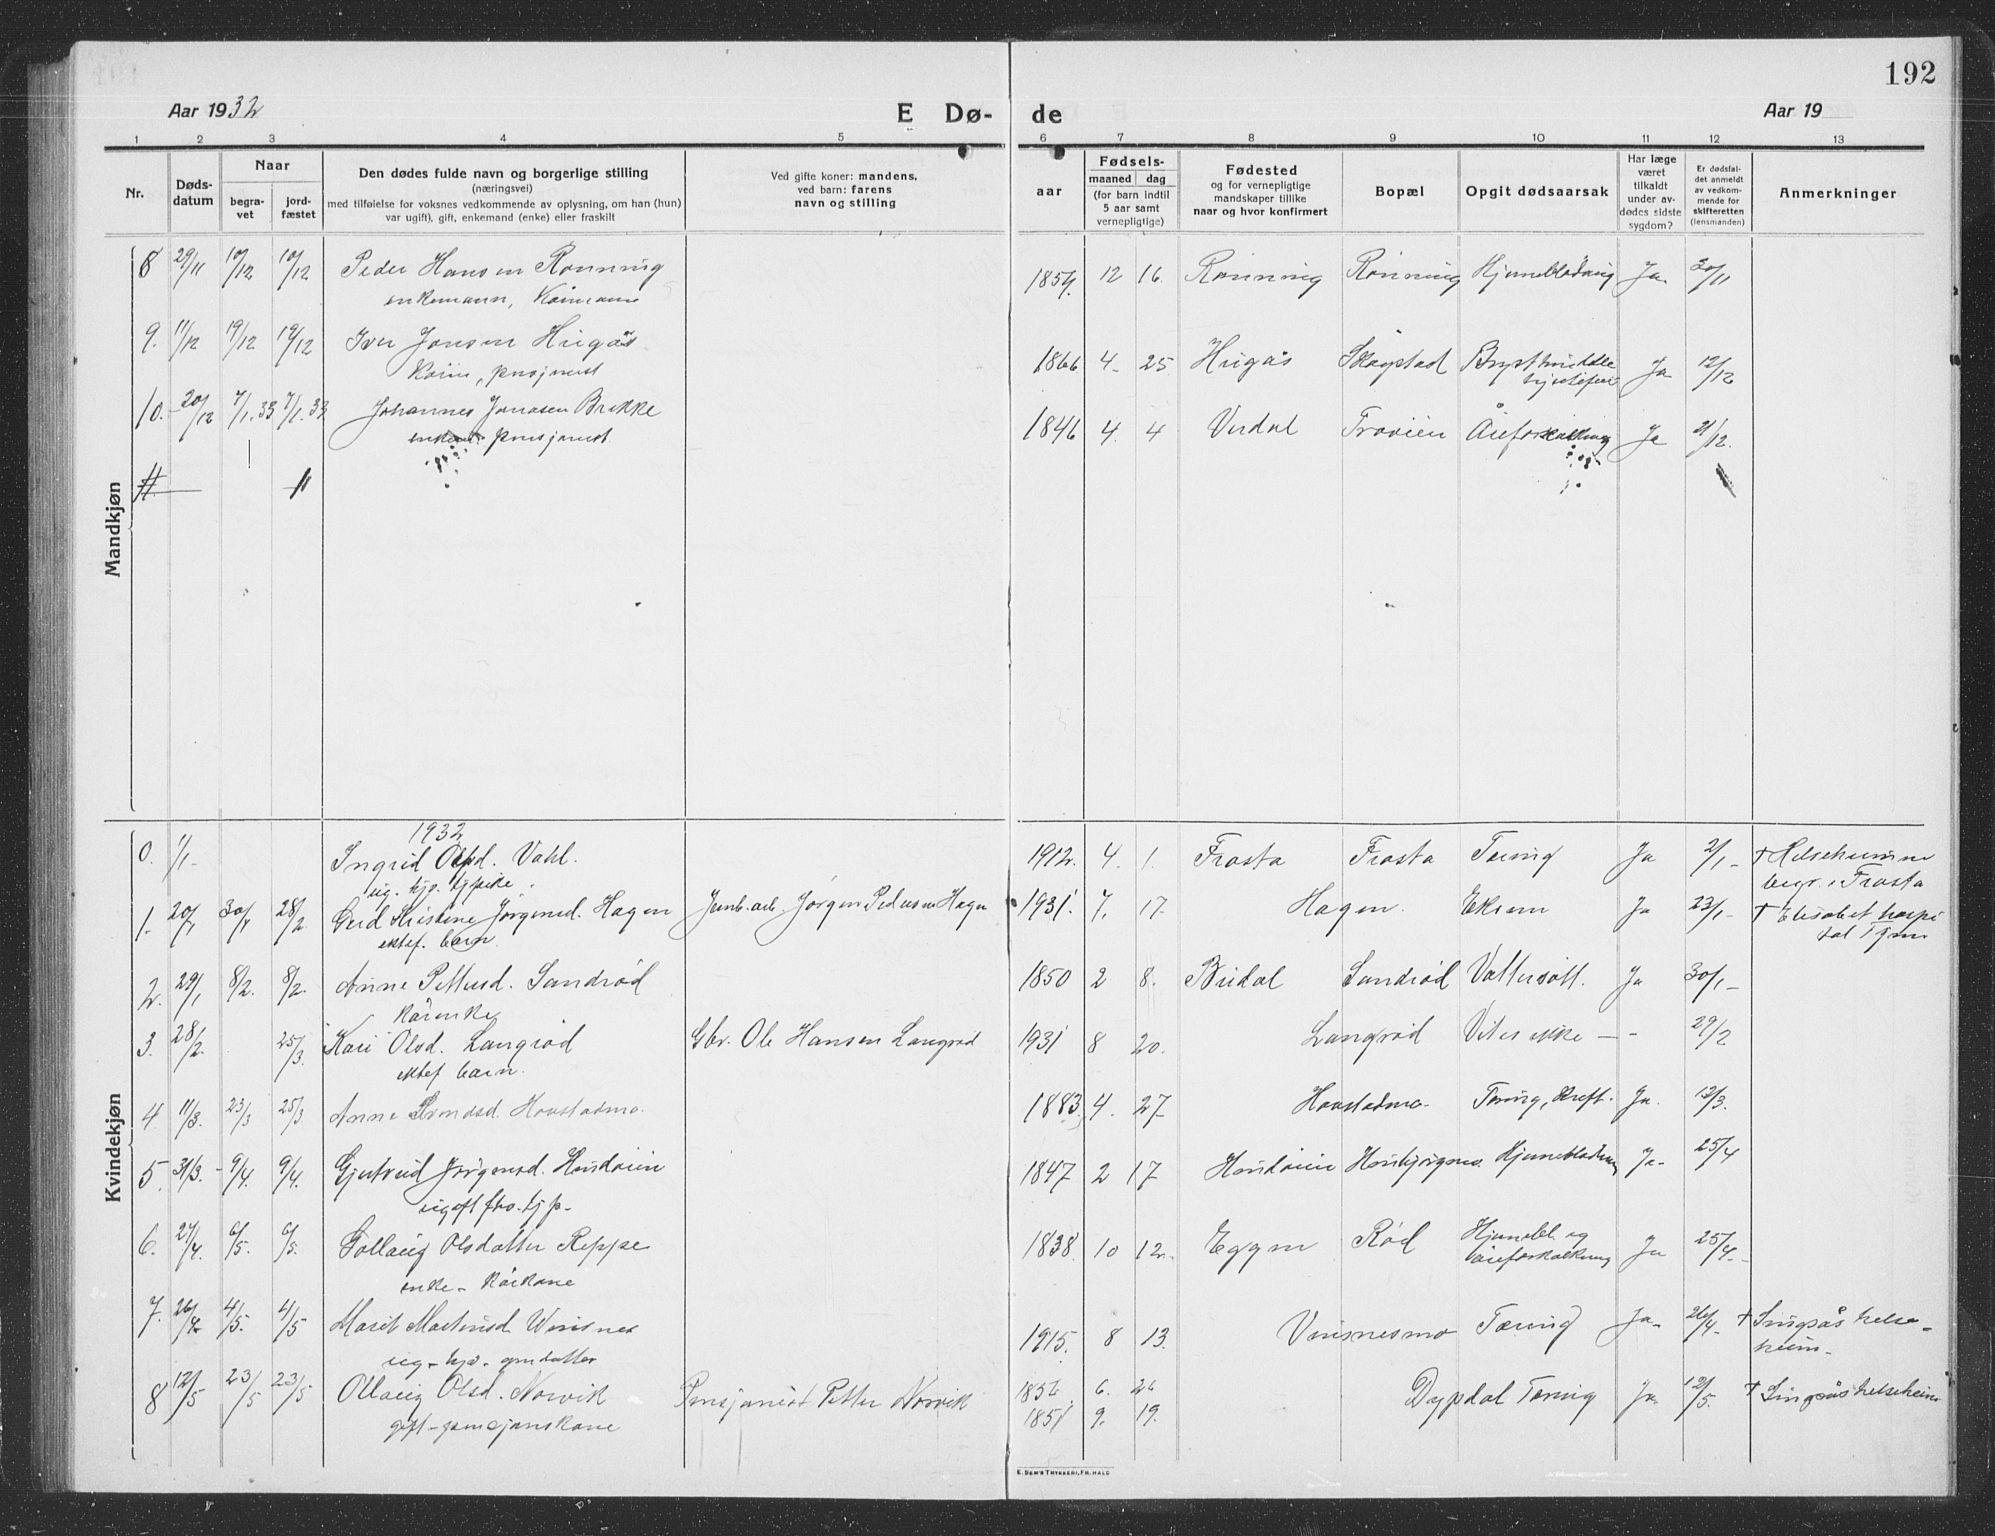 192
Aar 1932
E Dø-
de
Aar 19
1 2 3 4 5 6 7 8 9 10 11 12 13
Nr.
Døds-
datum
Naar
begra-
vet
jord-
fæstet
Den dødes fulde navn og borgerlige stilling
(næringsvei)
med tilføielse for voksnes vedkommende av oplysning, om han (hun)
var ugift, gift, enkemand (enke) eller fraskilt
Ved gifte koner: mandens,
ved barn: farens
navn og stilling
aar
Fødsels-
maaned dag
(for barn indtil
5 aar samt
vernepligtige)
Fødested
og for vernepligtige
mandskaper tillike
naar og hvor konfirmert
Bopæl
Opgit dødsaarsak
Har læge
været
tilkaldt
under av-
dødes sidste
sygdom?
Er dødsfal-
det anmeldt
av vedkom-
mende for
skifteretten
(lensmanden)
Anmerkninger
Mandkjøn
8 29/11 10/12 10/12 Peder Hansen Rønning 1854. 12 16. Rønning Rønning Hjerneblødning Ja 30/11
enkemann, Kårmann
9. 11/12 19/12 19/12 Iver Jonsen Hugås 1866 4. 25 Hugås Skogstad Ja 12/12
Kårm, pensjonist
10. 20/12 7/1.33 7/1.33 Johannes Jonasen Brekke 1846 4. 4 Verdal Trøøien Åreforkalkning Ja 21/12.
enkem. pensjonist
Kvindekjøn
1932
0. 1/1 Ingrid Olsd. Vahl. 1912. 4. 1. Frosta Frosta Tæring Ja 2/1 † Helseheimene
ug. hjv. tjpike. begr. i Frosta
1. 20/1 30/1 28/2 Gerd Kristine Jørgensd. Hagen Jernb.arb. Jørgen Pedersen Hagen 1931. 7. 17. Hagen. Eksem Ja 23/1 † Elisabet hospi
ektef. barn. tal Tr.heim
2. 29/1 8/2. 8/2. Anne Pettersd. Sandrød 1850 2 8. Budal Sandrød Vattersott. Ja 30/1
Kårenke
3. 28/2. 25/3. Kari Olsd. Langrød Gbr. Ole Hansen Langrød 1931 8 20. Langrød Vites ikke — - 29/2
ektef barn.
4. 11/3. 23/3 25/3 Anne Hovstadmo. 1883. 4. 27 Hovstadmo. Tæring, Kreft. Ja. 12/3.
5. 31/3. 9/4. 9/4. Gjertrud Jørgensd. Hindøien 1847 2 17 Hindøien Hjerneblødning Ja 25/4
ugift
6. 24/4. 6/5. 6/5. Gollaug Olsdatter Reppe 1838. 10 12. Eggen Rød Hjernebl. og
åreforkalkning Ja 25/4
enke - kårkone
7. 26/4 4/5. 4/5 Marit Martinsd. Winsnes 1915. 8 13. Vinsnesmo Tæring Ja 26/4 † Singsås helse-
ug. hjv. gmdatter heim
8 12/5 23/5 23/5 Ollaug Olsd. Norvik Pensjonist Petter Norvik 6. 26 Dypdal Tæring Ja 12/5. † Singsås helseheim
gift - 1851 9. 19.
E. SEM'S TRYKKERI, FR. HALD